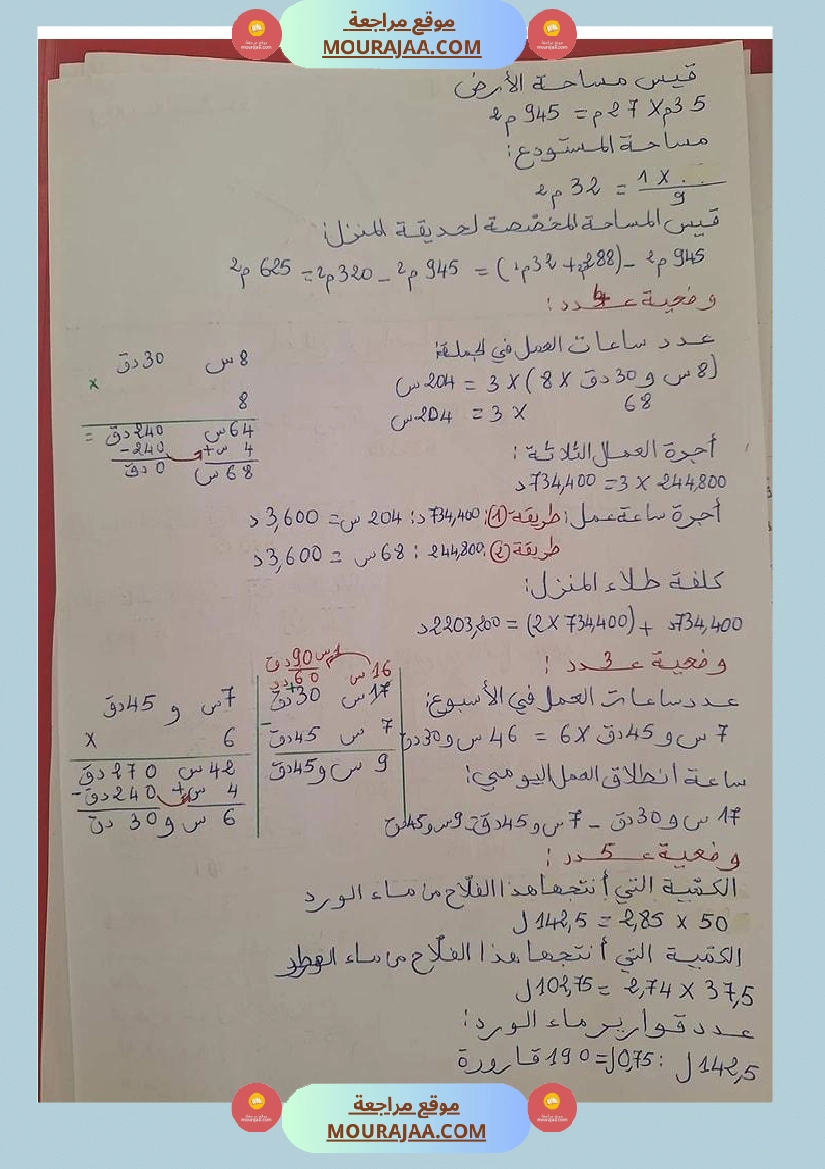 موقع مراجعة
MOURAJAA.COM
قيس مساحة الأرض
35م X 27م = 945 م2
مساحة المستودع:
1 X = 32 م2
9
قيس المساحة المخصّصة لحديقة المنزل:
945 م2 - (288م2 + 32م2) = 945 م2 - 320م2 = 625 م2
وضعية عـ4ـدد:
عدد ساعات العمل في الجملة:
(8 س و 30 دق X 8) X 3 = 204 س
68 X 3 = 204 س
8 س 30 دق
x
8
64 س 240 دق =
4 س+ 240-
68 س 0 دق
أجرة العمال الثلاثة:
244,800 X 3 = 734,400 د
أجرة ساعة عمل: طريقة (1): 734,400 د : 204 س = 3,600 د
طريقة (2): 244,800 : 68 س = 3,600 د
كلفة طلاء المنزل:
734,400 د + (734,400 X 2) = 2203,200 د
وضعية عـ3ـدد:
عدد ساعات العمل في الأسبوع:
7 س و 45 دق X 6 = 46 س و 30 دق
ساعة انطلاق العمل اليومي:
17 س و 30 دق - 7 س و 45 دق = 9 س و 45 دق
90 دق
16 س 60 دق
17 س 30 دق
7 س 45 دق -
9 س و 45 دق
7 س و 45 دق
6 X
42 س 270 دق
4 س+ 240 دق -
6 س و 30 دق
وضعية عـ5ـدد:
الكمّية التي أنتجها هذا الفلّاح من ماء الورد
50 X 2,85 = 142,5 ل
الكمّية التي أنتجها هذا الفلّاح من ماء العطر
37,5 X 2,74 = 102,75 ل
عدد قوارير ماء الورد:
142,5 ل : 0,75 ل = 190 قارورة
موقع مراجعة
MOURAJAA.COM